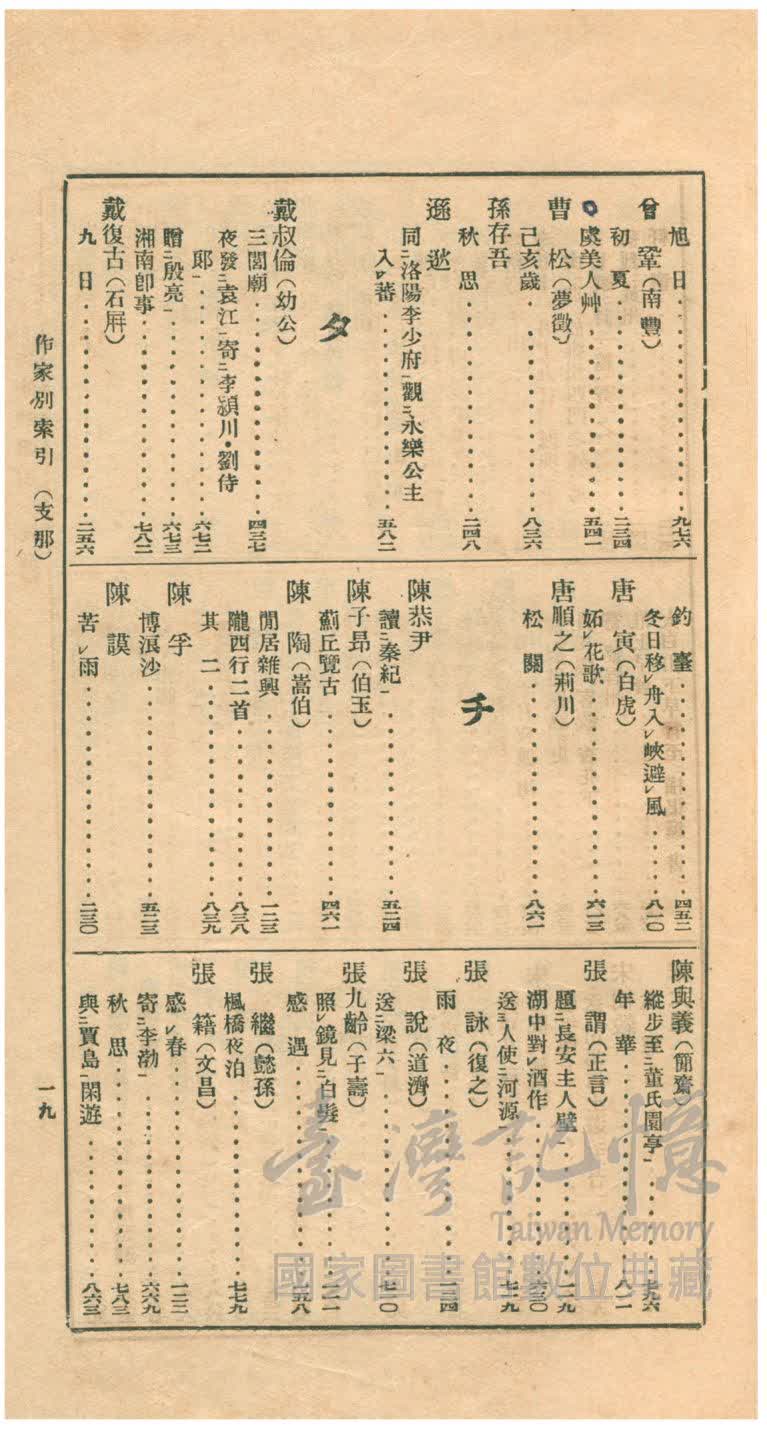 旭日・・・・・・・・・・九七六
曾鞏（南豐）
初夏・・・・・・・・・・二三四
虞美人艸・・・・・・・・・・五四一
曹松（夢徵）
己亥歲・・・・・・・・・・八三六
孫存吾
秋思・・・・・・・・・・二四八
遜逖
同ニ洛陽李少府一觀ニ永樂公主
入レ蕃・・・・・・・・・・五八二
タ
戴叔倫（幼公）
三閭廟・・・・・・・・・・四三七
夜發ニ袁江一寄ニ李潁川・劉侍
郎一・・・・・・・・・・六七二
贈ニ殷亮一・・・・・・・・・・六七三
湘南卽事・・・・・・・・・・七八二
戴復古（石屛）
九日・・・・・・・・・・二五六
釣臺・・・・・・・・・・四五二
冬日移レ舟入レ峽避レ風・・・・・八一〇
唐寅（白虎）
妬レ花歌・・・・・・・・・・六一三
唐順之（荊川）
松關・・・・・・・・・・八六一
チ
陳恭尹
讀ニ秦紀一・・・・・・・・・・五二四
陳子昂（伯玉）
薊丘覽古・・・・・・・・・・四六一
陳陶（嵩伯）
閒居雜興・・・・・・・・・・一二三
隴西行二首・・・・・・・・・・八三八
其二・・・・・・・・・・八三九
陳孚
博浪沙・・・・・・・・・・五二三
陳謨
苦レ雨・・・・・・・・・・二三〇
陳與義（簡齋）
縱步至ニ董氏園亭一・・・・・七九六
年華・・・・・・・・・・八一一
張謂（正言）
題ニ長安主人壁一・・・・・一一九
湖中對レ酒作・・・・・六三〇
送三人使ニ河源一・・・・・七一九
張詠（復之）
雨夜・・・・・・・・・・二四
張說（道濟）
送ニ梁六一・・・・・・・・・・七二〇
張九齡（子壽）
照レ鏡見ニ白髮一・・・・・一二一
感遇・・・・・・・・・・一五八
張繼（懿孫）
楓橋夜泊・・・・・・・・・・七七九
張籍（文昌）
感レ春・・・・・・・・・・一二二
寄ニ李渤一・・・・・・・・・・六六九
秋思・・・・・・・・・・七八三
與ニ賈島一閑遊・・・・・・・・・・八六三
作家別索引（支那）
一九
臺灣記憶
Taiwan Memory
國家圖書館數位典藏